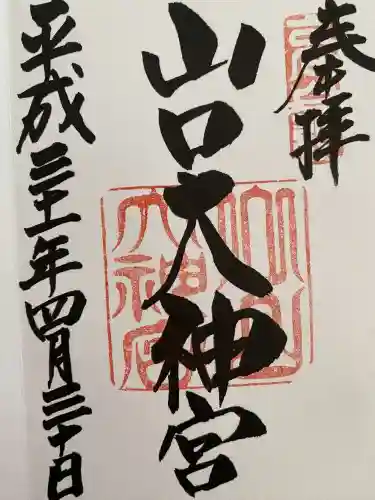 奉拝
山口大神宮
平成三十一年四月三十日